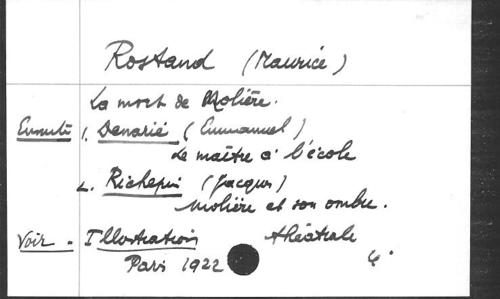 Rostand (Maurice)
La mort de Molière.
Ensuite 1. Denarié (Emmanuel)
Le maître à l'école
2. Richepin (Jacques)
Molière et son ombre.
Voir - Illustration théâtrale
Paris 1922